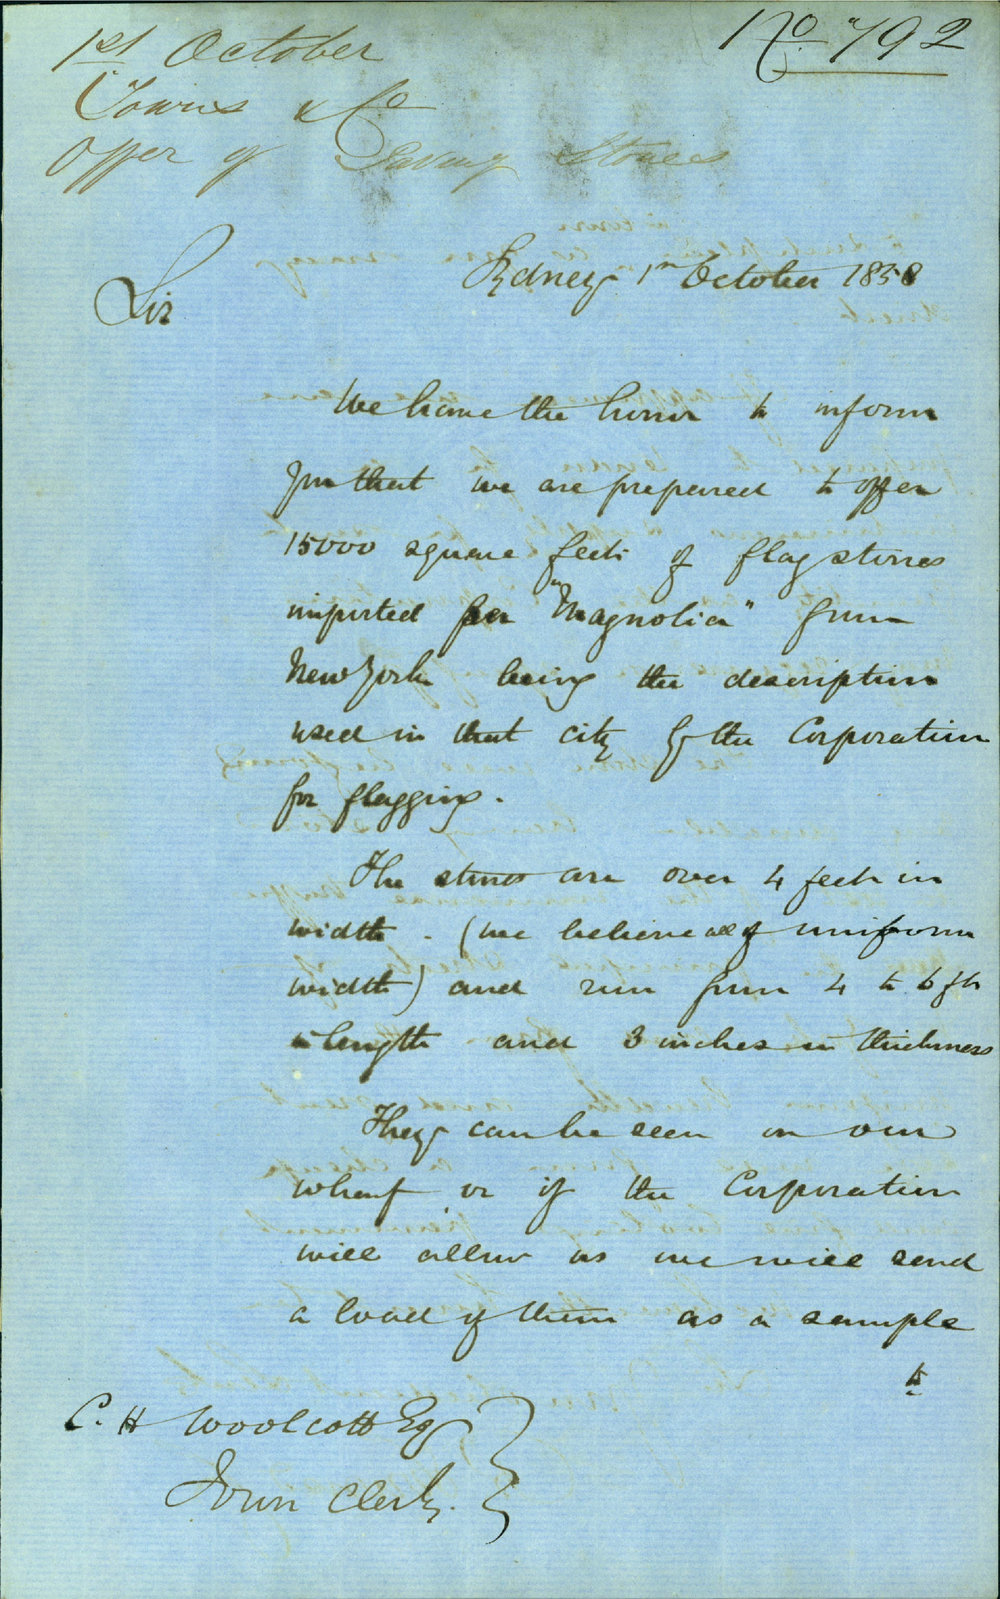 1st October
Towns & Co
Offer of Paving Stones
No 792
Sydney 1st October 1858
Sir
We have the honor to inform
you that we are prepared to offer
15000 square feet of flag stones
imported per "Magnolia" from
New York being the description
used in that city by the Corporation
for flagging.
The stones are over 4 feet in
width. (we believe all of uniform
width) and run from 4 to 6 ft
in length and 3 inches in thickness
They can be seen on our
wharf or if the Corporation
will allow us we will send
a load of them as a sample
to
C. H Woolcott Esq
Town Clerk.